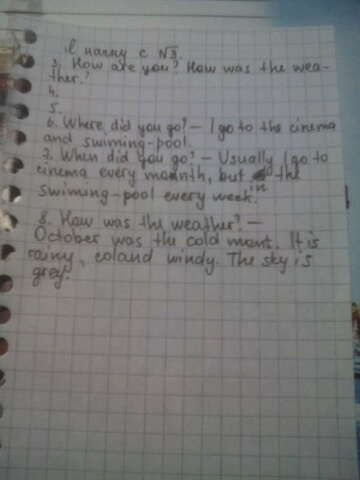 l начну с №3.
3. How are you? How was the wea-
ther?
4.
5.
6. Where did you go? – I go to the cinema
and swiming-pool.
7. When did you go? – Usually I go to
cinema every month, but in the
swiming-pool every week.
8. How was the weather? –
October was the cold mont. It is
rainy, coland windy. The sky is
grey.